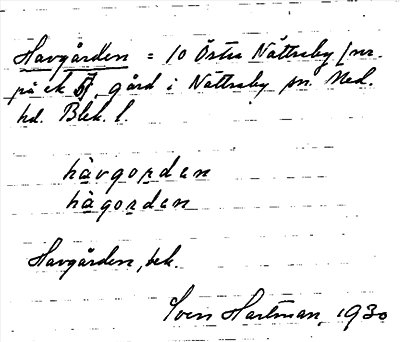 Havgården = 10 Östra Nättraby [nr.
på ek 57, gård i Nättraby sn. Med.
hd. Blek. l.
hàvgorden
hàgorden
Havgården, bek.
Sven Hartman, 1930